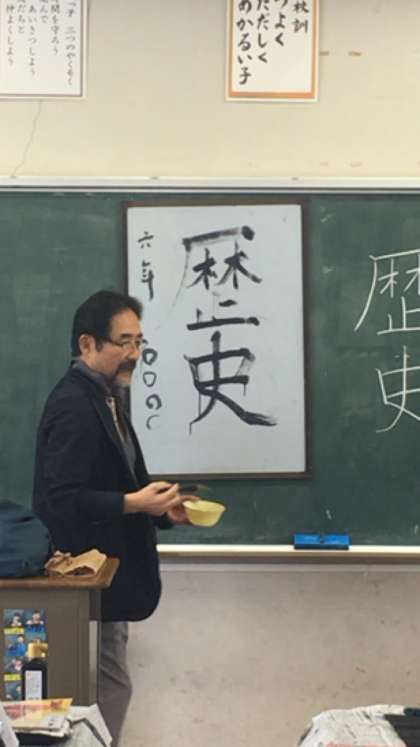 っ子 三つのやくそく
間を守ろう
んで
あいさつしよう
だちと
仲よくしよう
校訓
つよく
ただしく
あかるい子
歴史
歴史
六年 〇〇〇〇